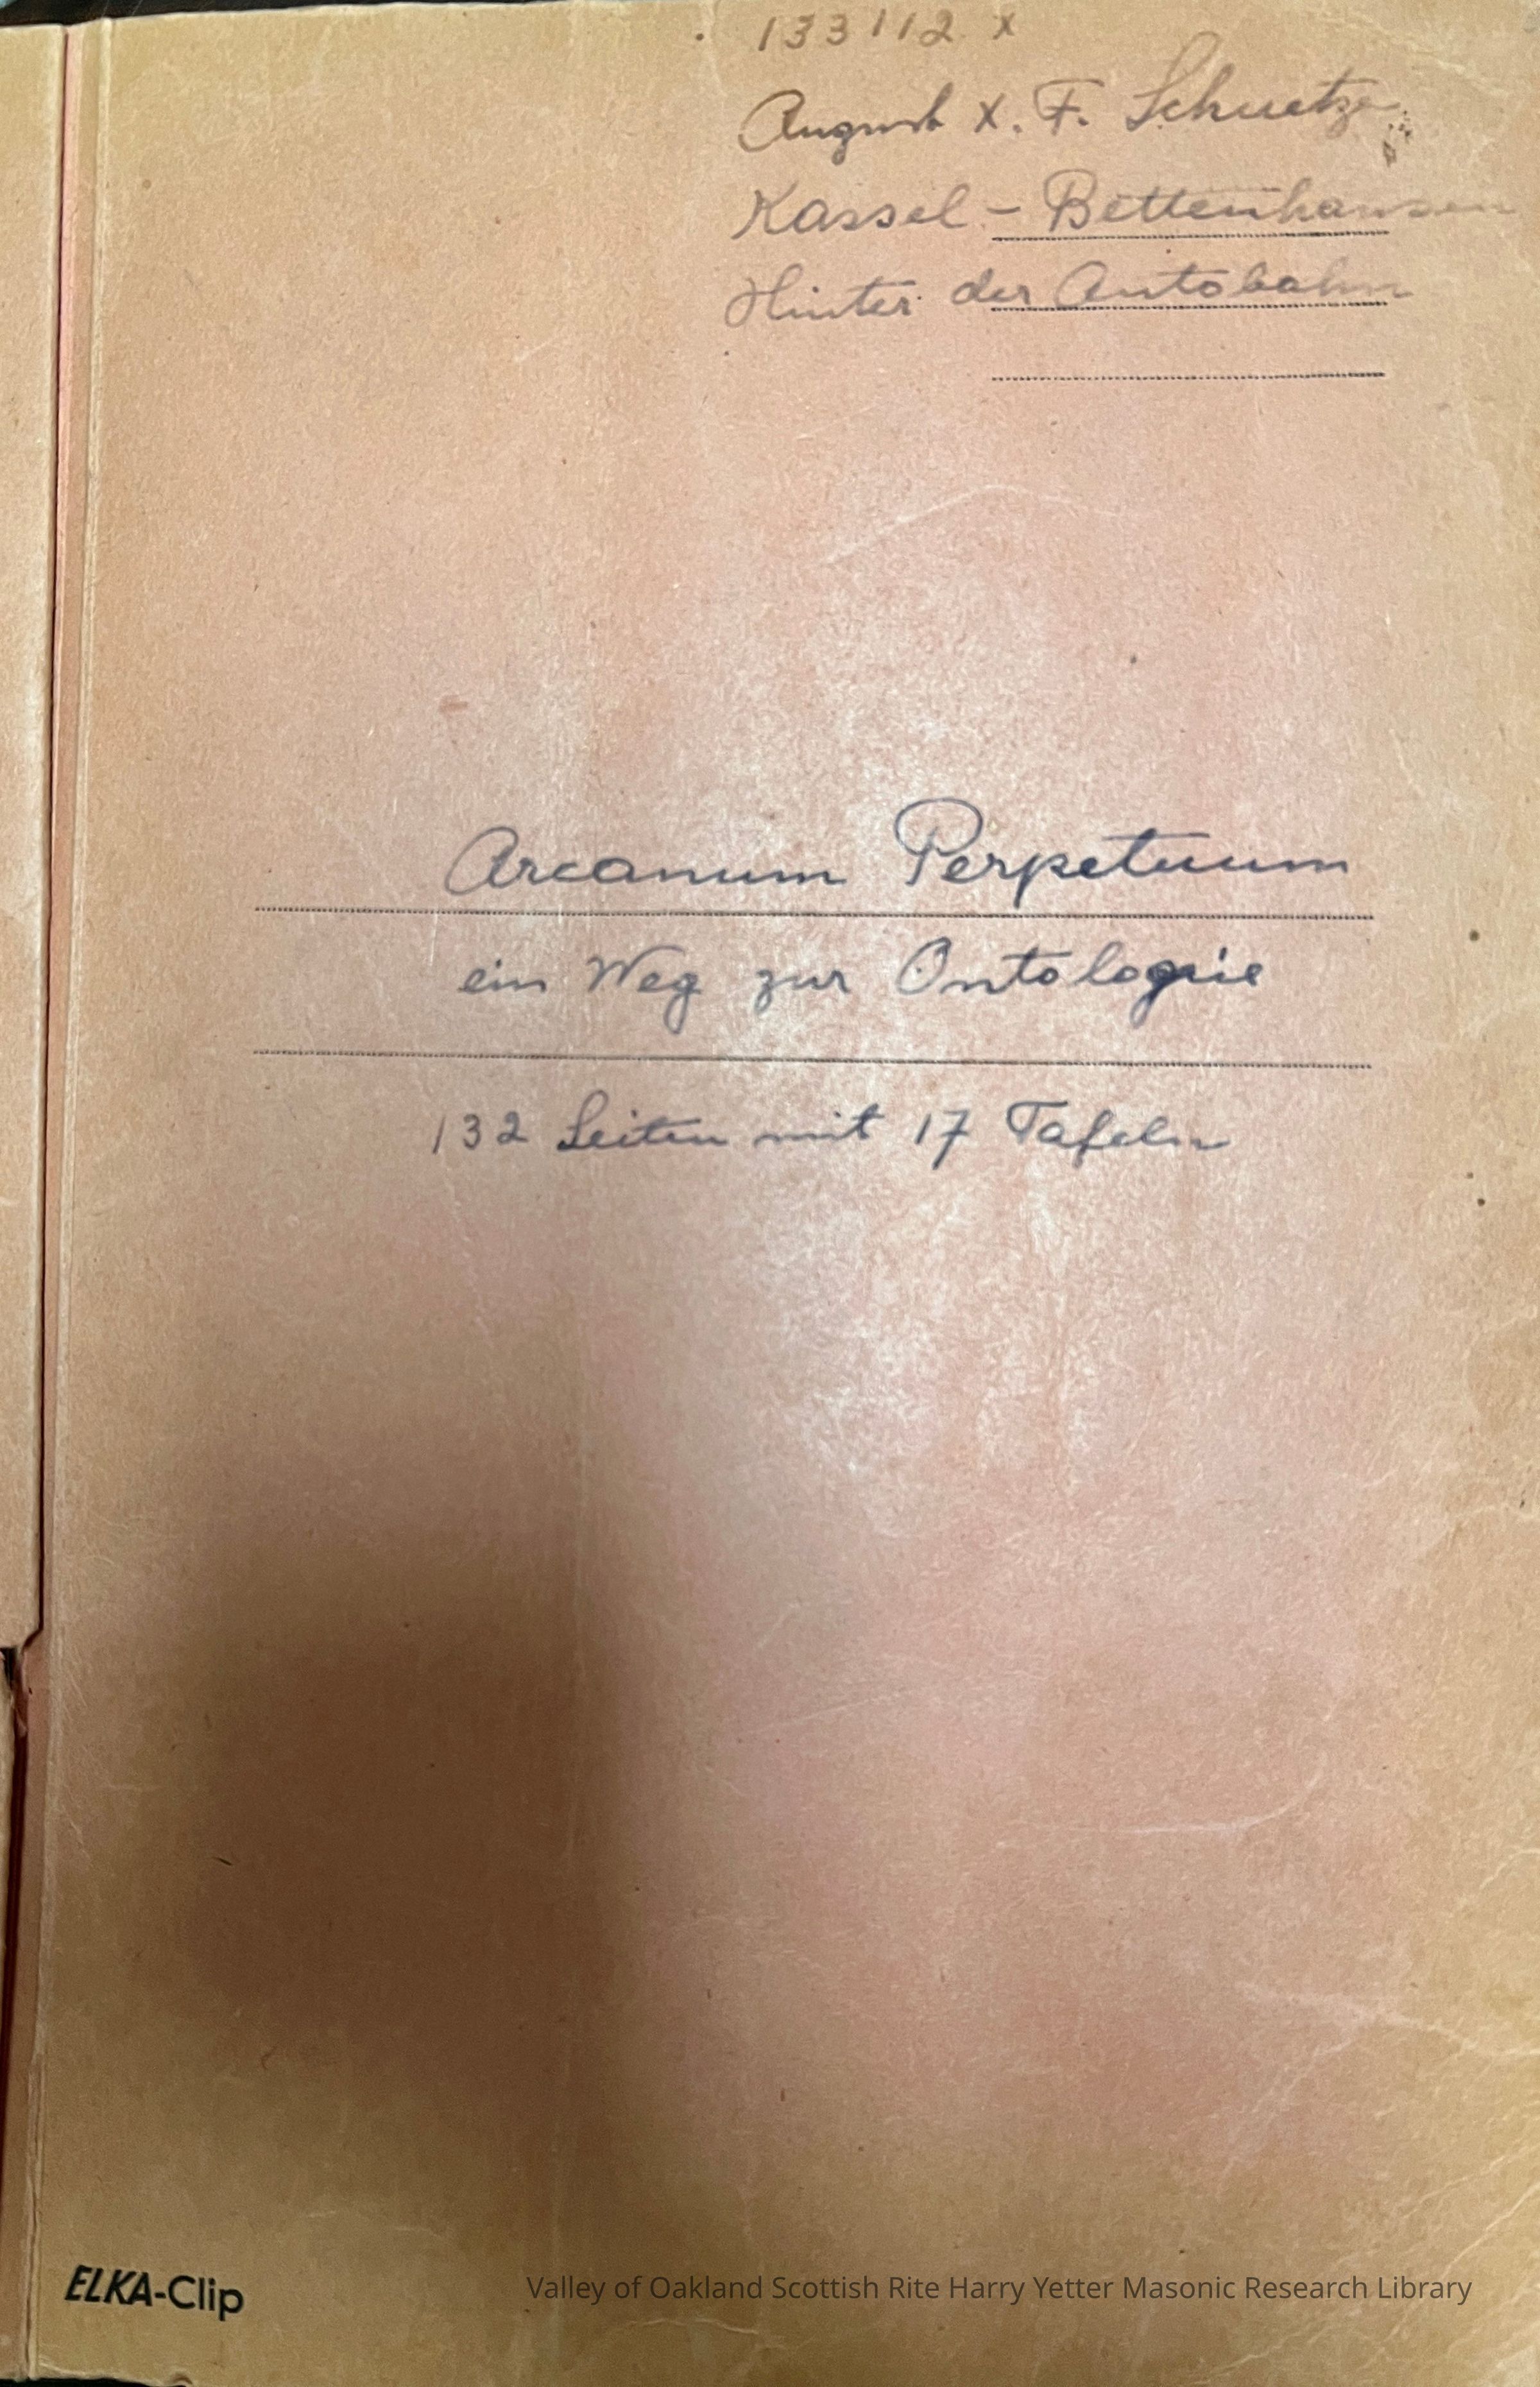 133112 x
August X. F. Schuetze
Kassel - Bettenhausen
Hinter der Autobahn
Arcanum Perpetuum
ein Weg zur Ontologie
132 Seiten mit 17 Tafeln
ELKA-Clip
Valley of Oakland Scottish Rite Harry Yetter Masonic Research Library